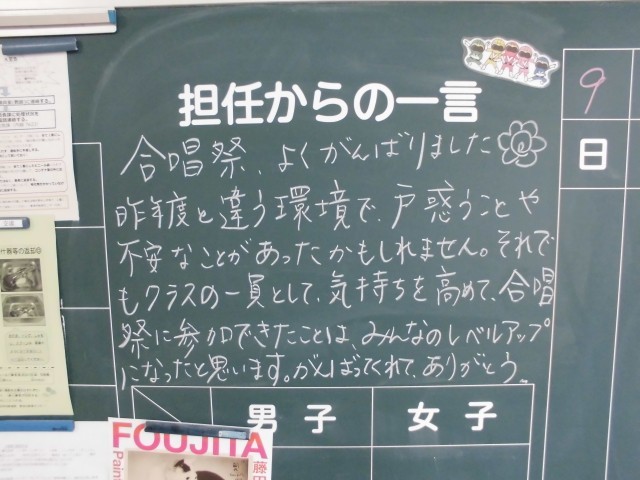 担任からの一言
合唱祭、よくがんばりました
昨年度と違う環境で、戸惑うことや
不安なことがあったかもしれません。それで
もクラスの一員として、気持ちを高めて、合唱
祭に参加できたことは、みんなのレベルアップ
になったと思います。がんばってくれて、ありがとう。
9
日
男子
女子
FOUJITA